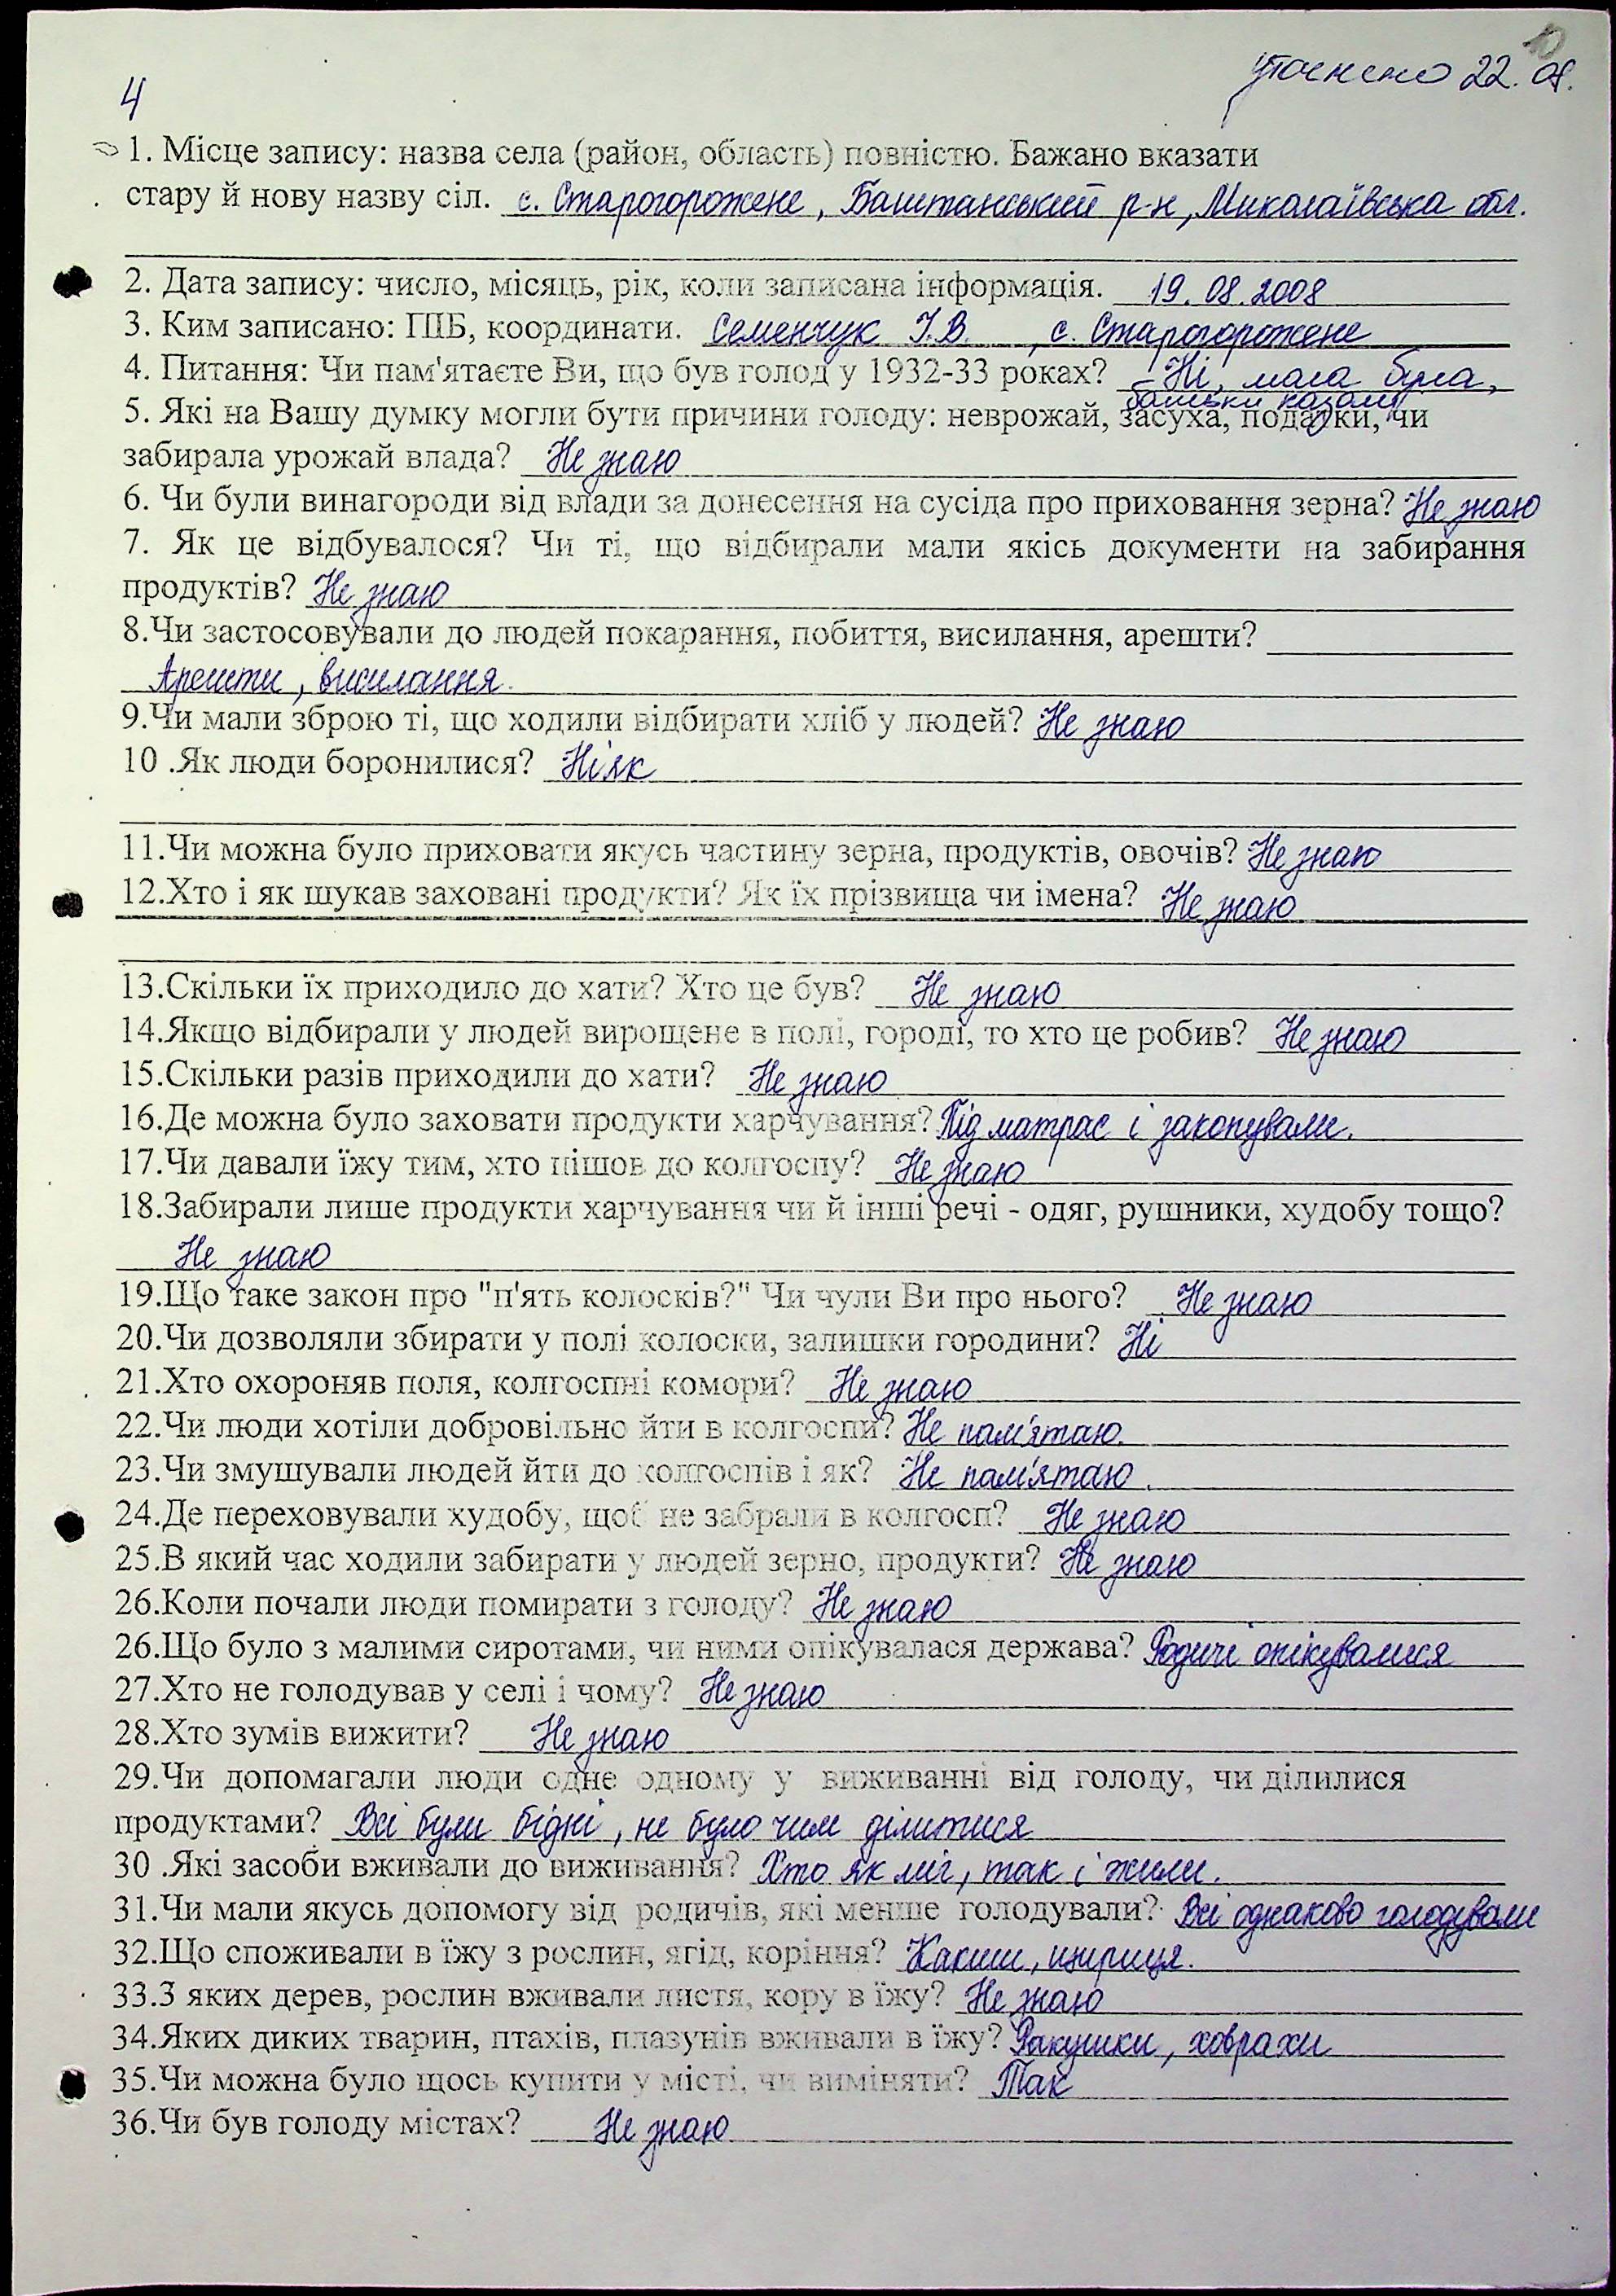 10
уточнено 22.08.
4
1. Місце запису: назва села (район, область) повністю. Бажано вказати
стару й нову назву сіл. с. Старогорожене, Баштанський р-н, Миколаївська обл.
2. Дата запису: число, місяць, рік, коли записана інформація. 19.08.2008
3. Ким записано: ПІБ, координати. Семенчук І.В., с. Старогорожене
4. Питання: Чи пам'ятаєте Ви, що був голод у 1932-33 роках? – Ні, мала була,
батьки казали
5. Які на Вашу думку могли бути причини голоду: неврожай, засуха, податки, чи
забирала урожай влада? Не знаю
6. Чи були винагороди від влади за донесення на сусіда про приховання зерна? Не знаю
7. Як це відбувалося? Чи ті, що відбирали мали якісь документи на забирання
продуктів? Не знаю
8.Чи застосовували до людей покарання, побиття, висилання, арешти?
Арешти, висилання.
9.Чи мали зброю ті, що ходили відбирати хліб у людей? Не знаю
10 .Як люди боронилися? Ніяк
11.Чи можна було приховати якусь частину зерна, продуктів, овочів? Не знаю
12.Хто і як шукав заховані продукти? Як їх прізвища чи імена? Не знаю
13.Скільки їх приходило до хати? Хто це був? Не знаю
14.Якщо відбирали у людей вирощене в полі, городі, то хто це робив? Не знаю
15.Скільки разів приходили до хати? Не знаю
16.Де можна було заховати продукти харчування? Під матрас і закопували.
17.Чи давали їжу тим, хто пішов до колгоспу? Не знаю
18.Забирали лише продукти харчування чи й інші речі - одяг, рушники, худобу тощо?
Не знаю
19.Що таке закон про "п'ять колосків?" Чи чули Ви про нього? Не знаю
20.Чи дозволяли збирати у полі колоски, залишки городини? Ні
21.Хто охороняв поля, колгоспні комори? Не знаю
22.Чи люди хотіли добровільно йти в колгоспи? Не пам'ятаю.
23.Чи змушували людей йти до колгоспів і як? Не пам'ятаю.
24.Де переховували худобу, щоб не забрали в колгосп? Не знаю
25.В який час ходили забирати у людей зерно, продукти? Не знаю
26.Коли почали люди помирати з голоду? Не знаю
26.Що було з малими сиротами, чи ними опікувалася держава? Родичі опікувалися
27.Хто не голодував у селі і чому? Не знаю
28.Хто зумів вижити? Не знаю
29.Чи допомагали люди одне одному у виживанні від голоду, чи ділилися
продуктами? Всі були бідні, не було чим ділитися
30 .Які засоби вживали до виживання? Хто як міг, так і жили.
31.Чи мали якусь допомогу від родичів, які менше голодували? Всі однаково голодували
32.Що споживали в їжу з рослин, ягід, коріння? Какиш, щириця.
33.З яких дерев, рослин вживали листя, кору в їжу? Не знаю
34.Яких диких тварин, птахів, плазунів вживали в їжу? Ракушки, ховрахи
35.Чи можна було щось купити у місті, чи виміняти? Так
36.Чи був голоду містах? Не знаю